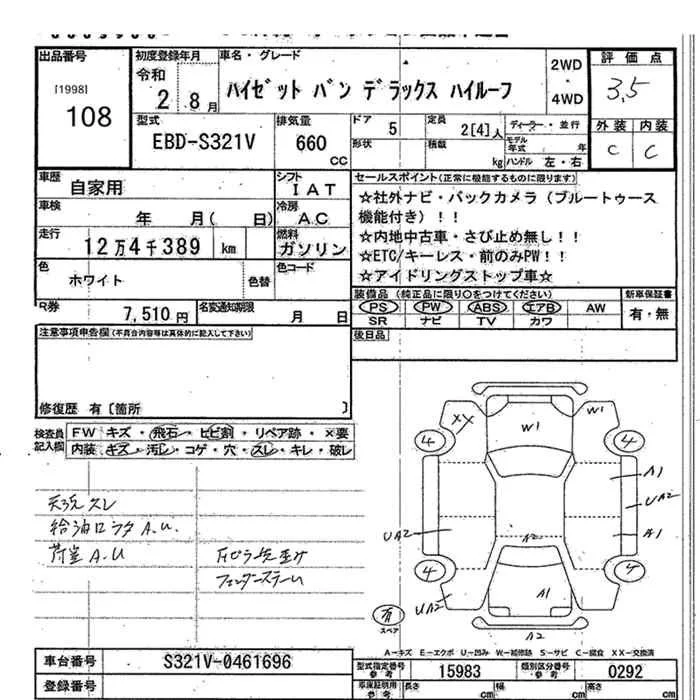 出品番号
[1998]
108
初度登録年月
令和
2 8月
車名・グレード
ハイゼット バン デラックス ハイルーフ
2WD
・
4WD
評価点
3.5
外装 内装
C C
型式
EBD-S321V
排気量
660
CC
ドア
5
定員
2[4]人
ディーラー・並行
形状
積載
kg
モデル年式
年
ハンドル 左・右
車歴
自家用
シフト
IAT
車検
年 月( 日)
冷房
AC
走行
12万4千389 km
燃料
ガソリン
色
ホワイト
色替
色コード
R券
7,510円
名変通知期限
月 日
セールスポイント(正常に機能するものに限ります)
☆社外ナビ・バックカメラ(ブルートゥース
機能付き)!!
☆内地中古車・さび止め無し!!
☆ETC/キーレス・前のみPW!!
☆アイドリングストップ車☆
装備品(純正品に限り○をつけてください)
新車保証書
PS PW ABS エアB AW
有・無
SR ナビ TV カワ
後日品
注意事項申告欄(不具合内容等は具体的に記入して下さい)
修復歴 有〔箇所 〕
検査員
記入欄
FW キズ・飛石・ヒビ割・リペア跡・×要
内装 キズ・汚レ・コゲ・穴・スレ・キレ・破レ
天張スレ
給油口フタA.U.
荷室A.U
フェンダーステー
XX
W1
W1
4
4
A1
UA2
A1
UA2
A2
4
4
A1
UA2
A2
有
スペア
A-キズ E-エクボ U-凹み W-補修跡 S-サビ C-腐食 XX-交換済
車台番号
S321V-0461696
型式指定番号
参考
15983
類別区分番号
参考
0292
登録番号
車庫証明用
参考
長さ
cm
幅
cm
高さ
cm